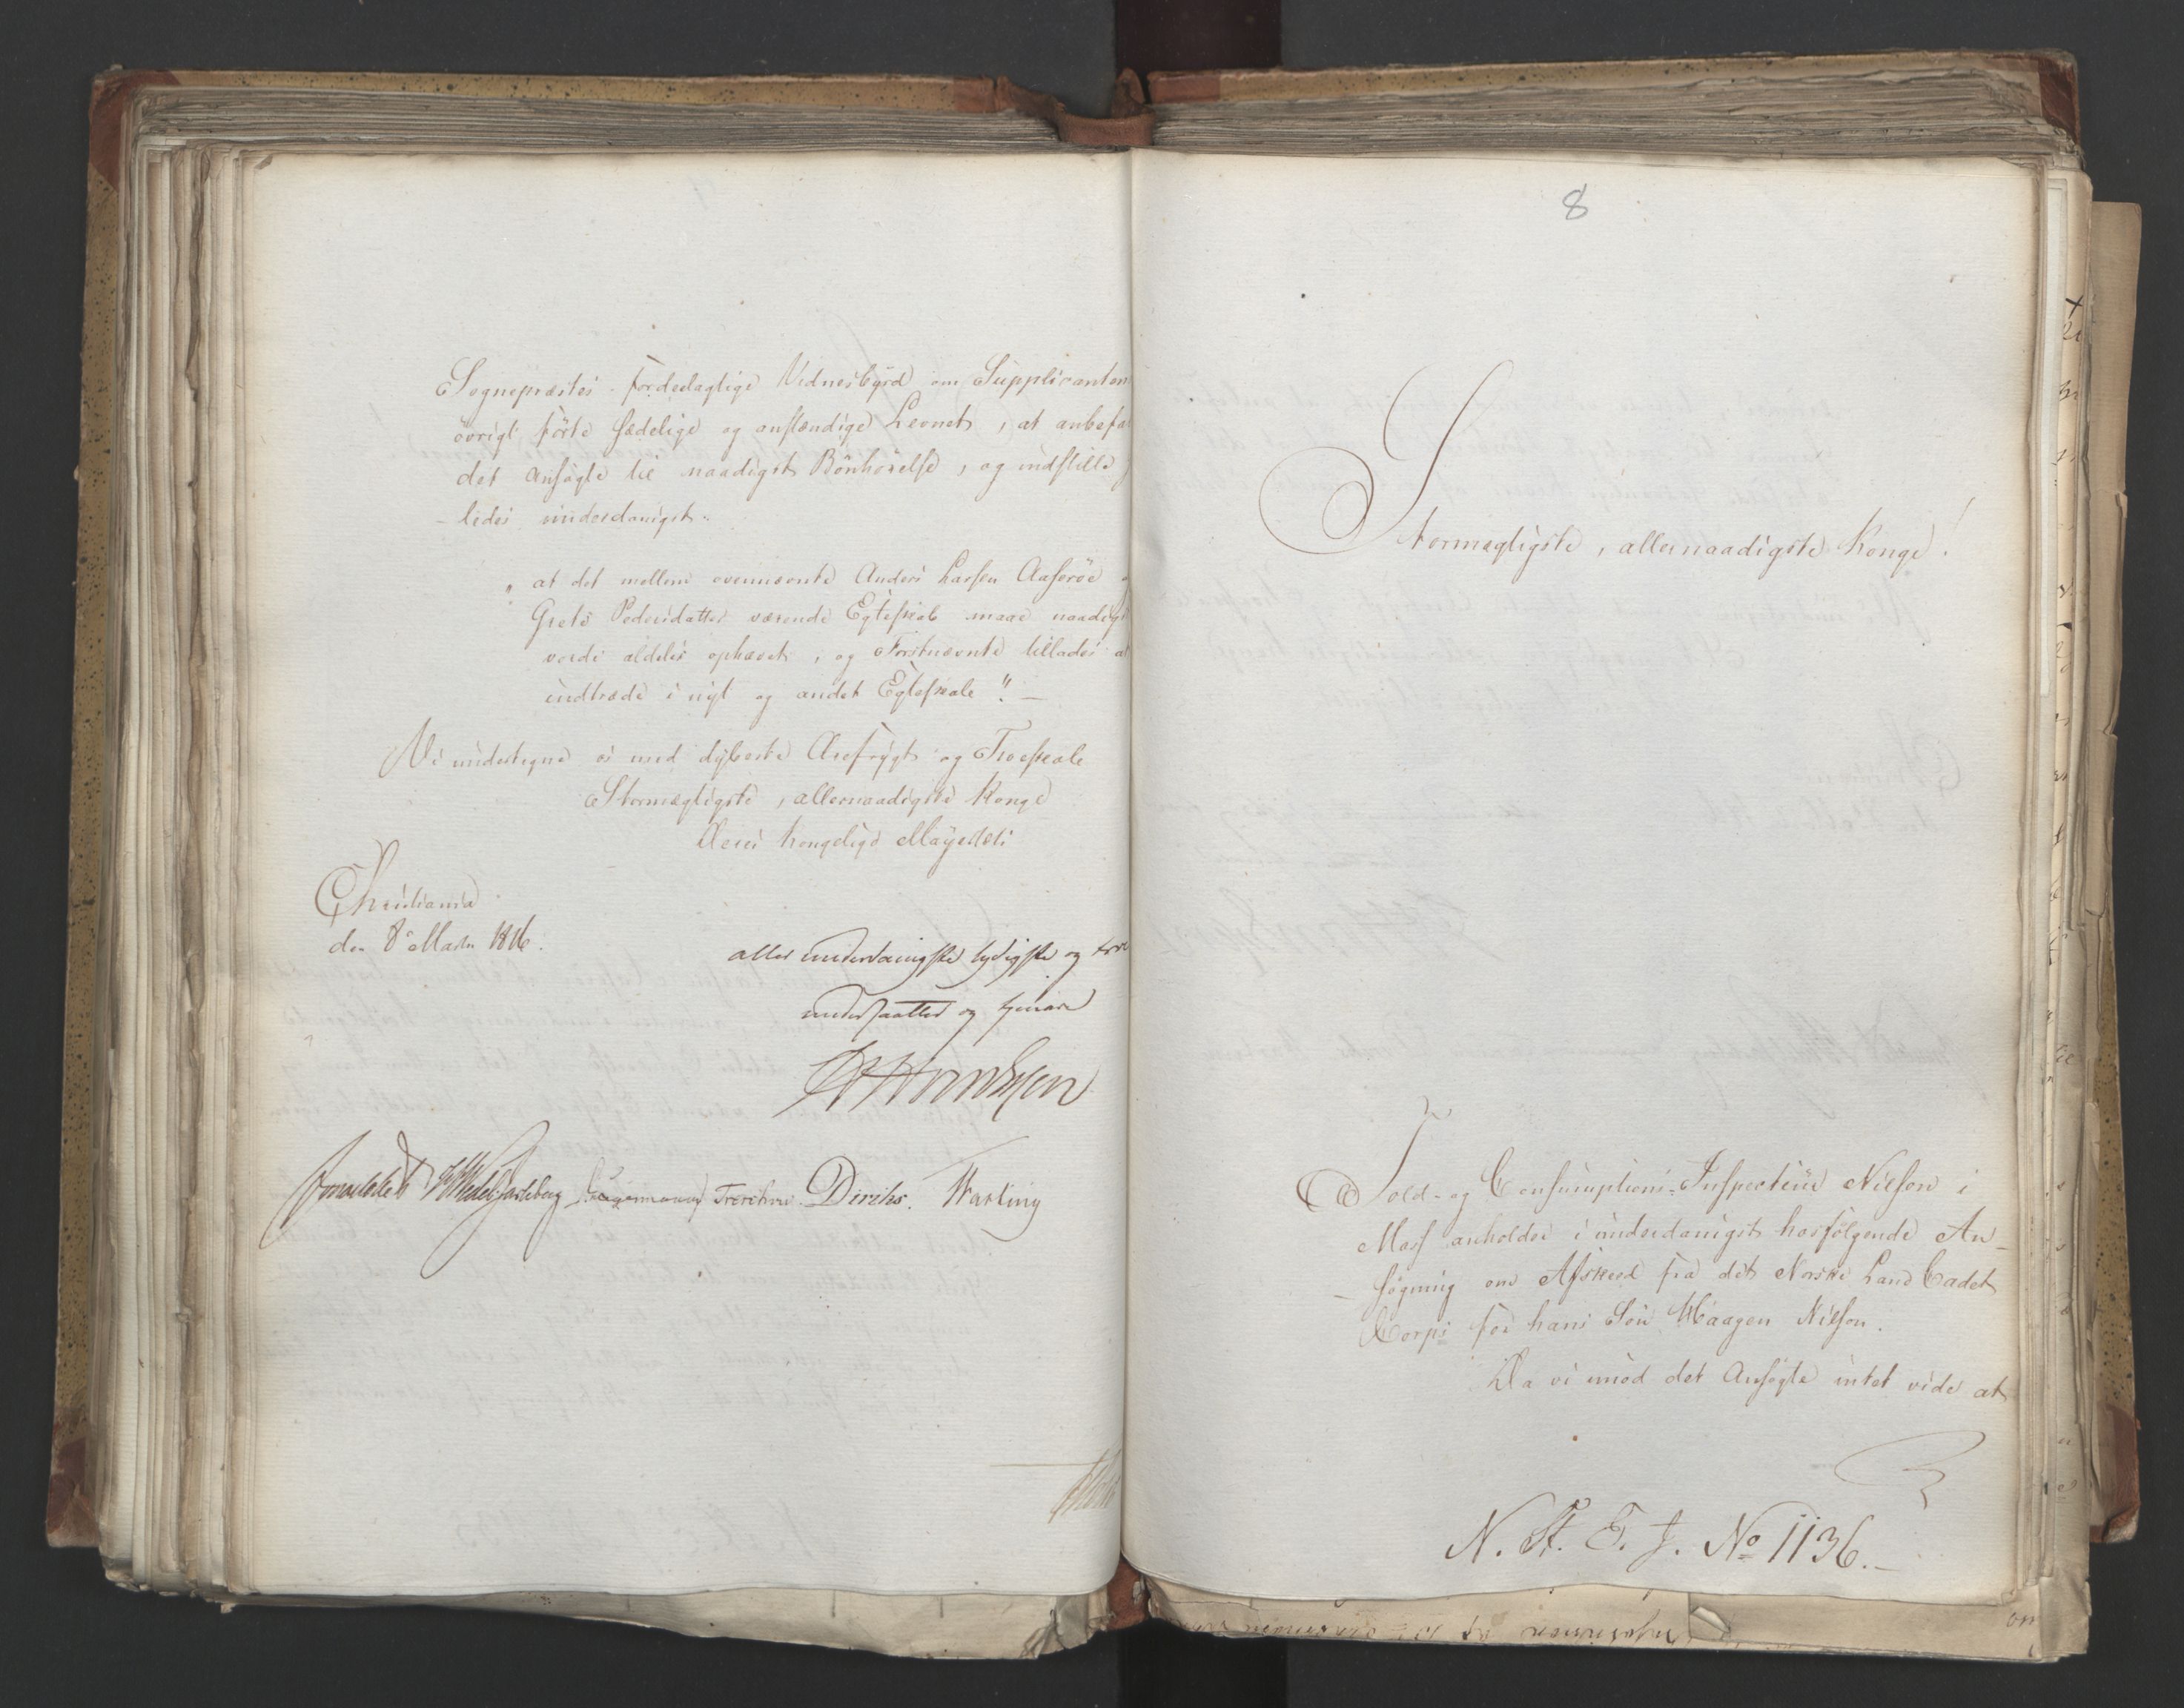 Sognepræstes fordeelagtige Vidnesbyrd om Supplicanten
övrigt förte sædelige og anstændige Levnet, at anbefa
det Ansögte til naadigst Bönhörelse, og indstille
-ledes underdanigst:
"at det mellem ovennævnte Anders Larsen Aaseröe
Grete Pedersdatter værende Egteskab maae naadigst
vorde aldeles ophævet, og Förstnævnte tillades at
indtræde i nyt og andet Egteskab". —
Vi undertegne os med dybeste Ærefrygt og Troeskab
Stormægtigste, allernaadigste Konge
Deres kongelige Majestæts
Christiania
den 8de Marts 1816.
aller underdanigste lydigste og troe
undersaatter og tjenere
Wedel Jarlsberg Treschow Diriks.
8
Stormægtigste, allernaadigste Konge!
Told- og Consumptions-Inspecteur Nielson i
Moss anholder i underdanigst hosfölgende An-
-sögning om Afskeed fra det Norske Land Cadet
Corps for hans Sön Haagen Nielson.
Da vi imod det Ansögte intet vide at
N. St. E. J. No 1136. —